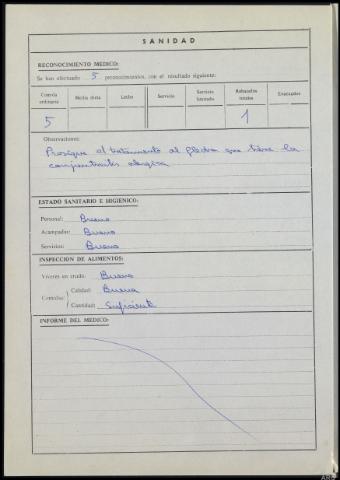 SANIDAD
RECONOCIMIENTO MEDICO:
Se han efectuado 5 reconocimientos, con el resultado siguiente:
Comida ordinaria Media dieta Leche Servicio Servicio limitado Rebajados totales Evacuados
5 1
Observaciones:
Prosigue el tratamiento al flecha que tiene la
conjuntivitis alergica
ESTADO SANITARIO E HIGIENICO:
Personal: Bueno
Acampada: Bueno
Servicios: Bueno
INSPECCION DE ALIMENTOS:
Víveres en crudo: Bueno
Comidas: Calidad: Buena
Cantidad: Suficiente
INFORME DEL MEDICO: